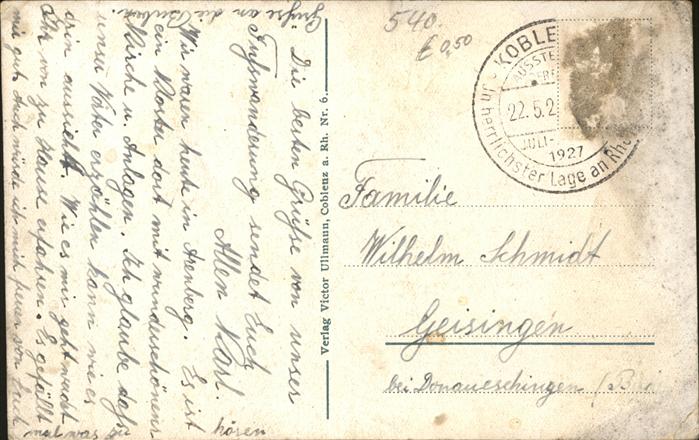 Grüße an die Buben.
Die besten Grüße von unserer
Fußwanderung sendet Euch
Allen Karl.
Wir waren heute in Arenberg. Es ist
ein Kloster dort mit wunderschönem
Kirche u. Anlagen. Ich glaube daß
unser Vater erzählen kann wie es
drin aussieht. Wie es mir geht
Ihr von zu Hause erfahren. Es gefällt
mir gut doch würde ich mich freuen von Euch
mal was zu
hören
Verlag Victor Ullmann, Coblenz a. Rh. Nr. 6.
540.
€ 0,50
KOBLE
AUSSTE
22.5.2
JULI-
1927
In herrlichster Lage an Rh
Familie
Wilhelm Schmidt
Geisingen
bei Donaueschingen